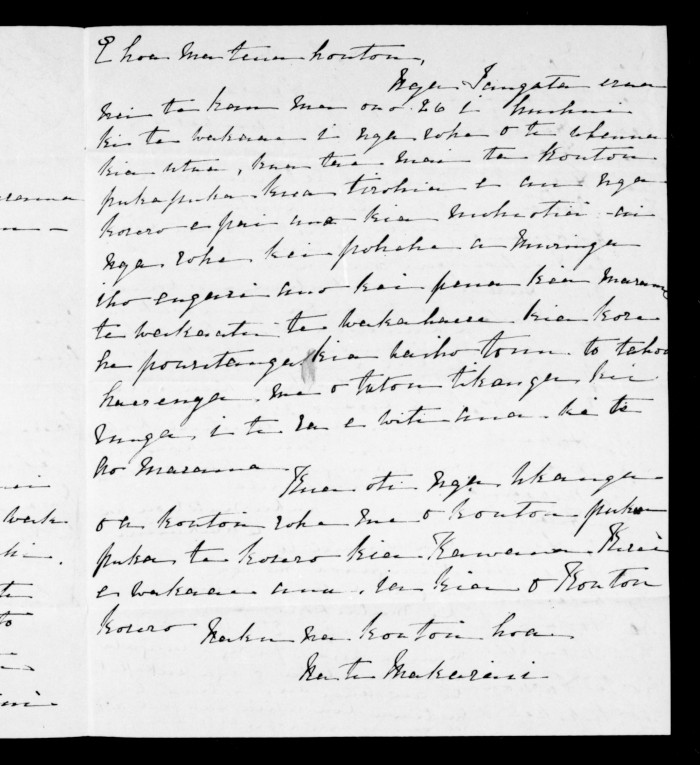 E hoa ma tena koutou,
Nga Tangata erua
nei te kau ma ono. 26 i huihui
ki te wakaae i nga rohe o te whenua
kia utua, kua tae mai ta koutou
pukapuka kua tirohia e au nga
korero e pai ana kia mohiotia ai
nga rohe kei pohehe a muringa
iho engari ano kei pena kia marama
te wakaatu te wakahaere kia kore
he pouritanga kia waiho tonu to tatou
haerenga me o tatou tikanga ki
runga i te ra e witi ana ki te
Ao Marama
Kua oti nga tikanga
o a koutou rohe me o koutou puka
puka te korero kia Kawana Kerei
e wakaae ana ia kia o Koutou
korero
Naku na koutou hoa
Na te Makarini
wak
te
to